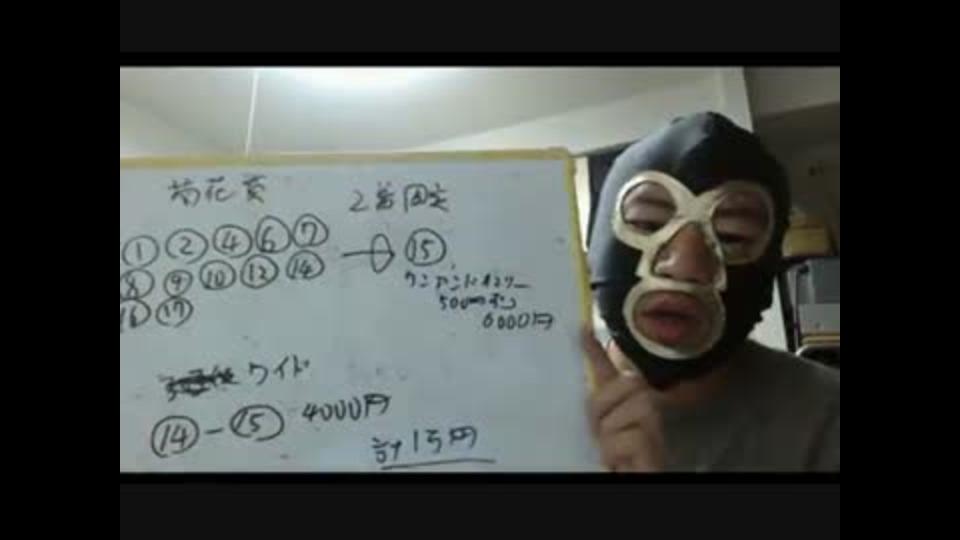 菊花賞 2着固定
① ② ④ ⑥ ⑦ → ⑮
⑧ ⑨ ⑩ ⑬ ⑭
⑯ ⑰
ワンアンドオンリー
500円ずつ
6000円
ワイド
⑭ー⑮ 4000円
計1万円